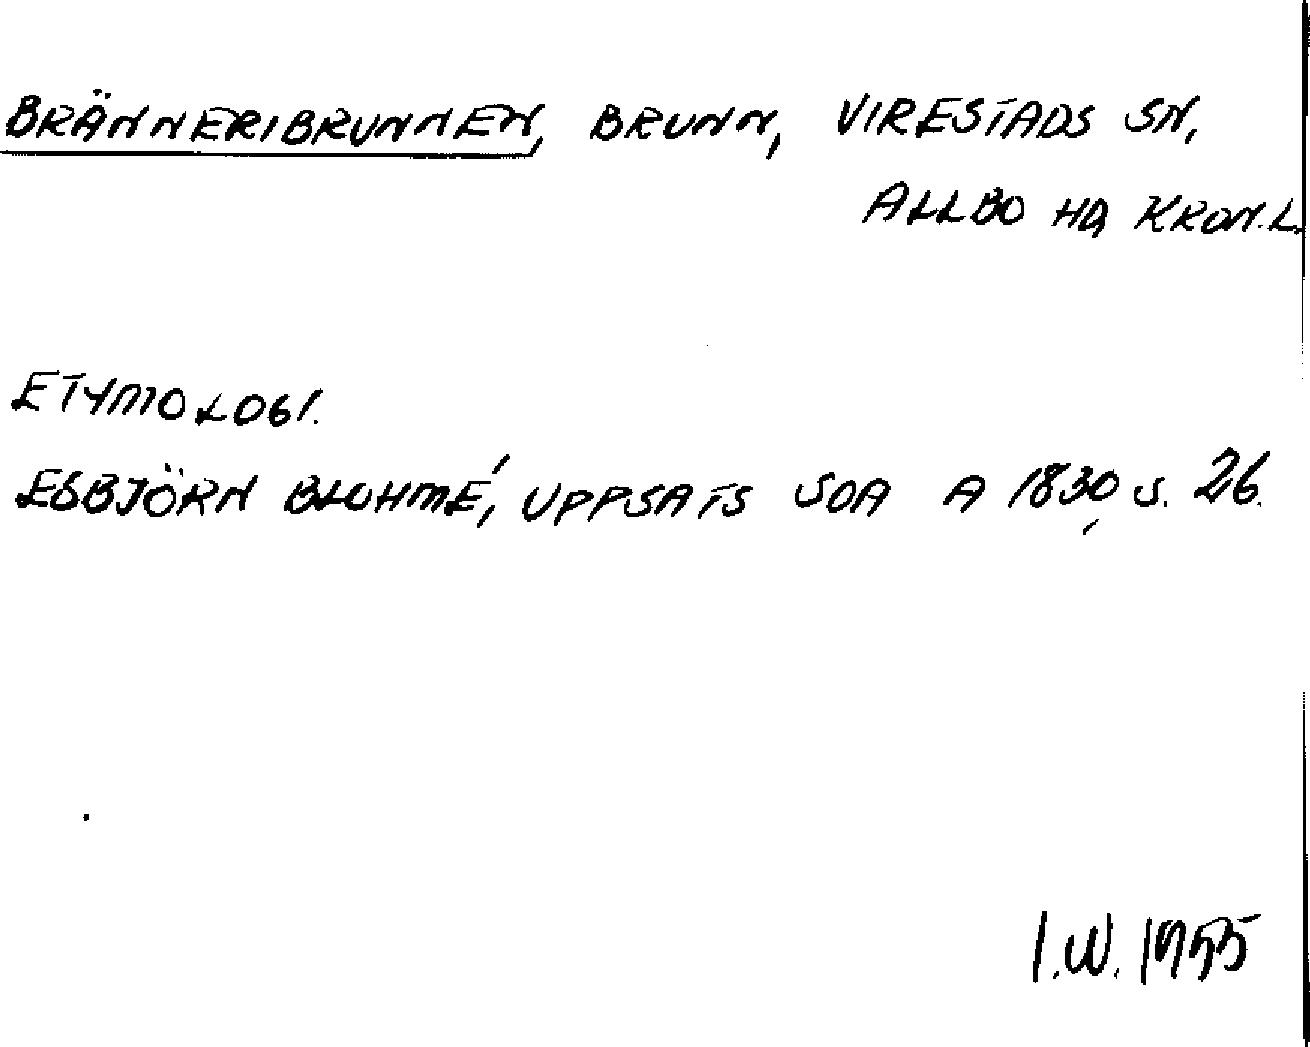 BRÄNNERIBRUNNEN, BRUNN, VIRESTADS SN,
ALLBO HD KRON. L.
ETYMOLOGI.
ESBJÖRN BLOHMÉ, UPPSATS SOA A 1830 S. 26.
I.W. 1955